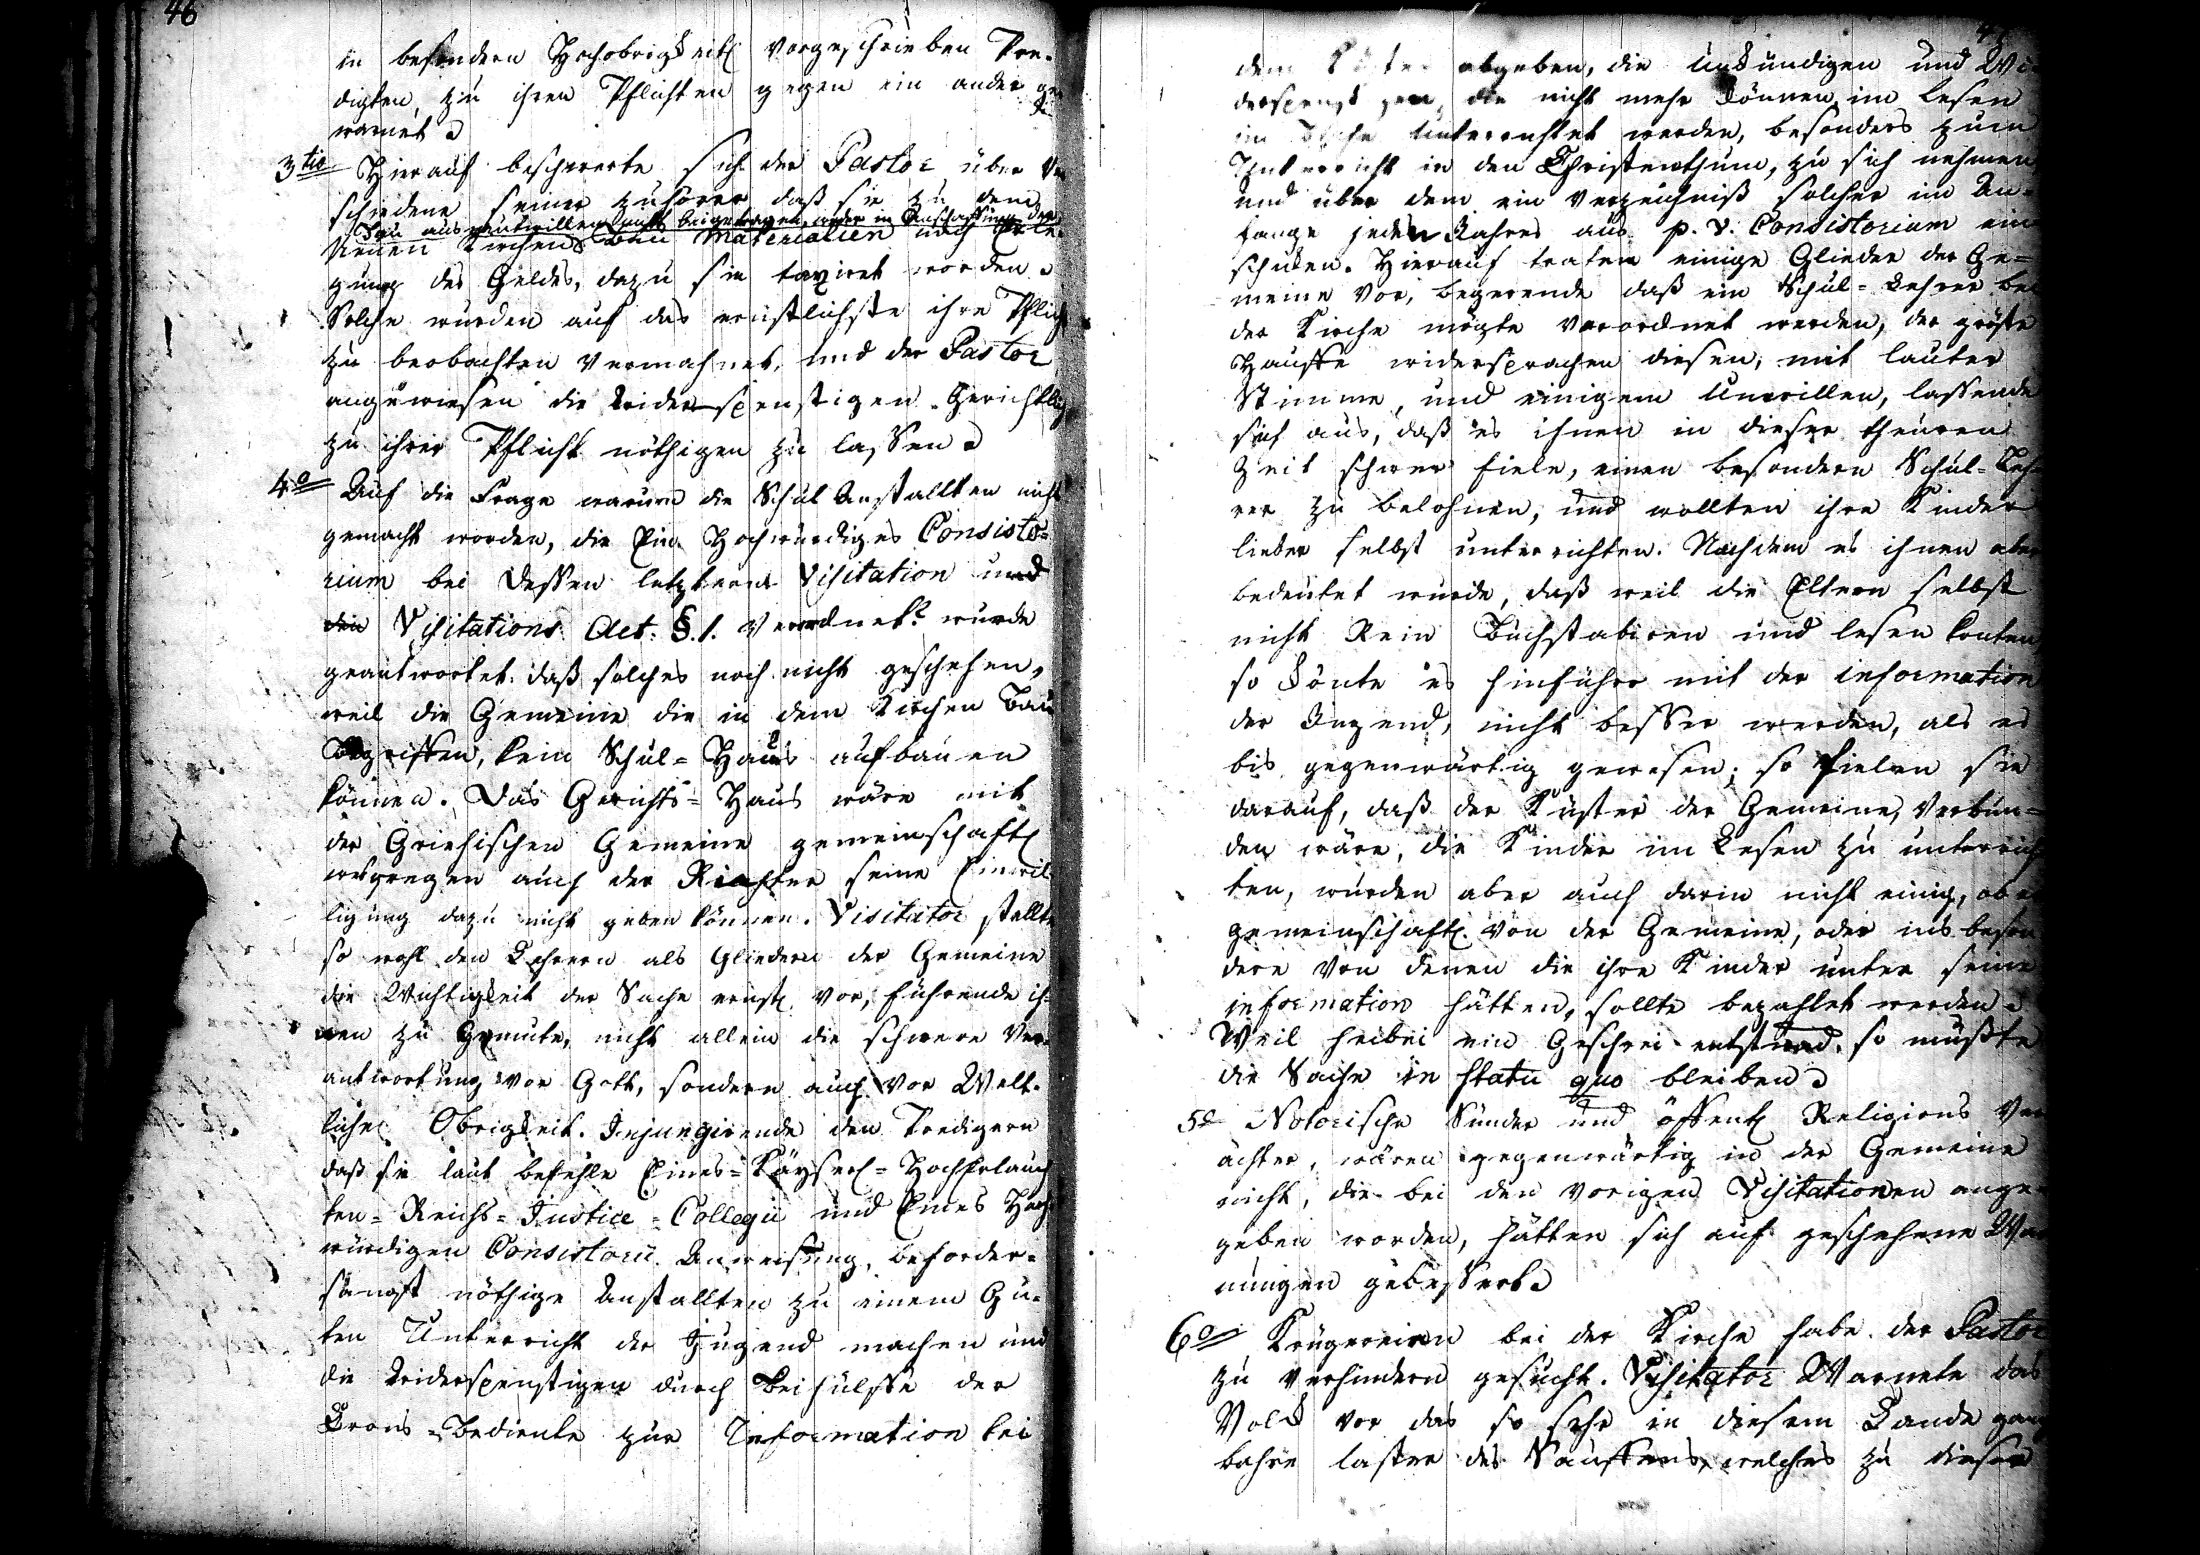 46
in besondern Hochobrigkeitl vorgeschrieben Pre-
digten, zu ihren Pflichten gegen ein ander
3tio Hierauf beschwerte sich der Pastor über ver
schiedene seiner zuhörer daß sie zu dem
Bau aus muthwillen nicht beigetragen, oder in Anschaffung der
Neuen Kirchen Bau Materialien nach Erle-
gung des Geldes, dazu sie taxiret worden
Solche wurden auf das ernstlichste ihre Pflich
zu beobachten vermahnet, und der Pastor
angewiesen die Widerspenstigen Gerichtlich
zu ihrer Pflicht nöthigen zu lassen
4o Auf die Frage warum die Schul Anstallten nicht
gemacht worden, die Ein Hochwürdiges Consisto-
rium bei dessen letztern Visitation und
den Visitations Act: §. 1. verordnet? wurde
geantwortet: daß solches noch nicht geschehen,
weil die Gemeine die in dem Kirchen Bau
Begriffen, kein Schul-Haus aufbauen
können. Das Gerichts-Haus wäre mit
der Griechischen Gemeine gemeinschaftl
weswegen auch der Richter seine Einwil-
ligung dazu nicht geben können. Visitator stellte
so wohl den Lehrern als Gliedern der Gemeine
die Wichtigkeit der Sache ernstl vor, führende ih-
nen zu Gemüte, nicht allein die schwere Ver-
antwortung vor Gott, sondern auch vor Welt-
licher Obrigkeit. Injungirende den Predigern
daß sie laut befehle Eines-Käyserl-Hocherlauch
ten-Reichs-Justice-Collegii und Eines Hoch
würdigen Consistorii Anweisung, beforder-
sahmst nöthige Anstallten zu einem Gu-
ten Unterricht der Jugend machen und
die Widerspenstigen durch Beihülffe der
Crons-Bediente zur Information bei
dem Küster abgeben, die Unkündigen und Wi
derspenstigen, die nicht mehr können im Lesen
im Buche unterrichtet werden, besonders zum
Unterricht in den Christenthum, zu sich nehmen
und über dem ein Verzeichniß solcher im An-
fange jeden Jahres ans p. v. Consistorium ein
schicken. Hierauf traten einige Glieder der Ge-
meine vor, begerende daß ein Schul-Lehrer bei
der Kirche mögte verordnet werden, der gröste
Hauffe widersprachen diesen, mit lauter
Stimme, und einigem Unwillen, lassende
sich aus, daß es ihnen in dieser theuren
Zeit schwer fiele, einen besondern Schul-Leh
rer zu belohnen, und wollten ihre Kinder
lieber selbst unterrichten. Nachdem es ihnen aber
bedeutet wurde, daß weil die Eltern selbst
nicht Rein Buchstabiren und lesen konten
so könte es hinführo mit der information
der Jugend, nicht besser werden, als es
bis gegenwärtig gewesen; so fielen sie
darauf, daß der Küster der Gemeine, verbun-
den wäre, die Kinder im Lesen zu unterrich
ten, wurden aber auch darin nicht einig, ob er
gemeinschaftl. von der Gemeine, oder ins beson
dere von denen die ihre Kinder unter seine
information hätten, sollte bezahlet werden
Weil hiebei ein Geschrei entstund, so mußte
die Sache in statu quo bleiben
5o Notorische Sünder und öffentl Religions Ver
ächter, wären gegenwärtig in der Gemeine
nicht, die bei den vorigen Visitationen ange-
geben worden, hätten sich auf geschehene War
nungen gebessert
6o Krügereien bei der Kirche habe der Pastor
zu verhindern gesucht. Visitator Warnete das
Volk vor das so sehr in diesem Lande gang
bahre laster des Sauffens, welches zu dieser